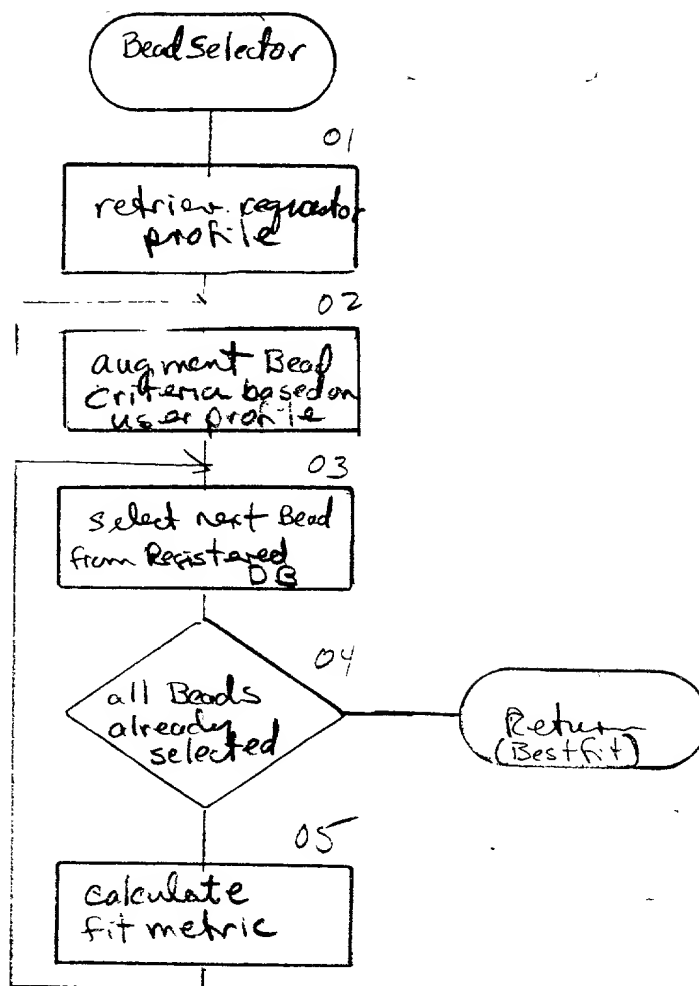 Bead Selector
01
retriev. requestor
profile
02
augment Bead
Criteria based on
user profile
03
select next Bead
from Registered
DB
04
all Beads
already
selected
Return
(Bestfit)
05
calculate
fit metric